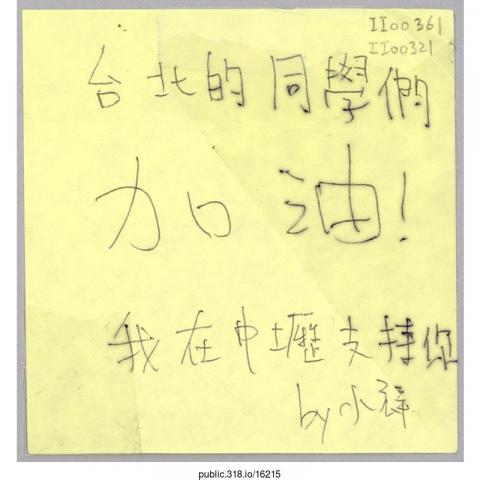 II00361
II00321
台北的同學們
加油!
我在中壢支持你
by 小祥
public.318.io/16215